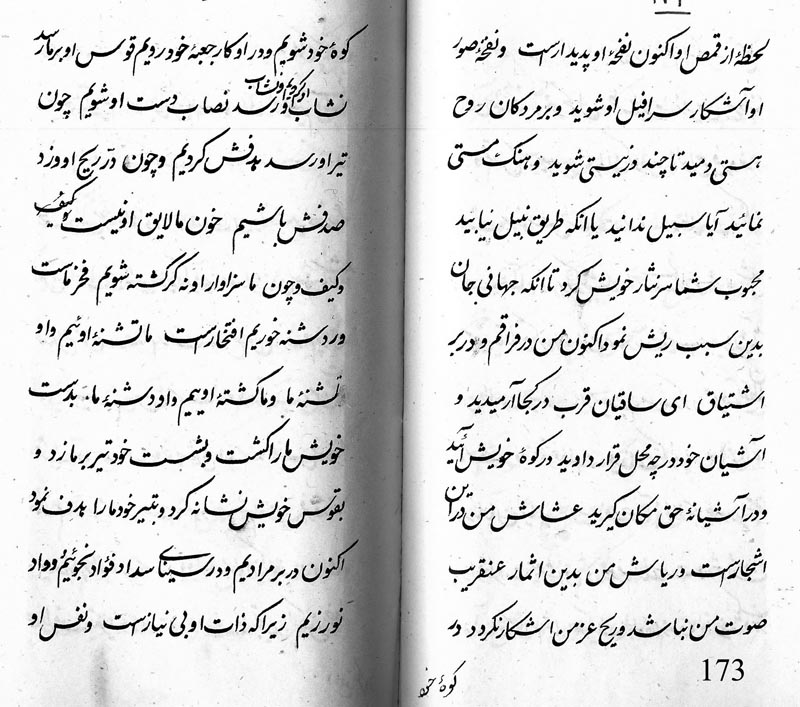 لحظهٔ از قمص او اکنون نفحهٔ او پدیدار است و نفخهٔ صور
او آشکار سرافیل او شوید و بر مردکان روح
هستی دمید تا چند در نیستی شوید و هنک مستی
نمائید آیا سبیل ندانید یا انکه طریق نبیل نیابید
محبوب شما سر نثار خویش کرد تا انکه جهانی جان
بدین سبب ریش نمود اکنون من در فراقم و در بر
اشتیاق ای ساقیان قرب در کجا آرمیدید و
آشیان خود در چه محل قرار دادید در کوهٔ خویش آئید
و در آشیانهٔ حق مکان کیرید عشاش من در این
اشجار است و ریاش من بدین اثمار عنقریب
صوت من نباشد و ریح عز من اشکار نکردد در
کوهٔ خو
173
کوهٔ خود شویم و در او کار جعبهٔ خود رویم قوس او بر ما رسد
نشاب او کردیم و نشاب او رسد نصاب دست او شویم چون
تیر او رسد هدفش کردیم و چون در ریح او وزد
صدفش باشیم خون ما لایق او نیست توکیف
و کیف و چون ما سزاوار او نه کر کشته شویم فخر ماست
ور دشنه خوریم افتخار است ما تشنهٔ اوئیم و او
تشنهٔ ما و ما کشتهٔ اوییم و او دشنهٔ ما بدست
خویش ما را کشت و بشست خود تیر بر ما زد و
بقوس خویش نشانه کرد و بتیر خود ما را هدف نمود
اکنون در بر مرادیم و در سینای سداد فؤاد نجوئیم و وداد
نورزیم زیرا که ذات او بی نیاز است و نفس او